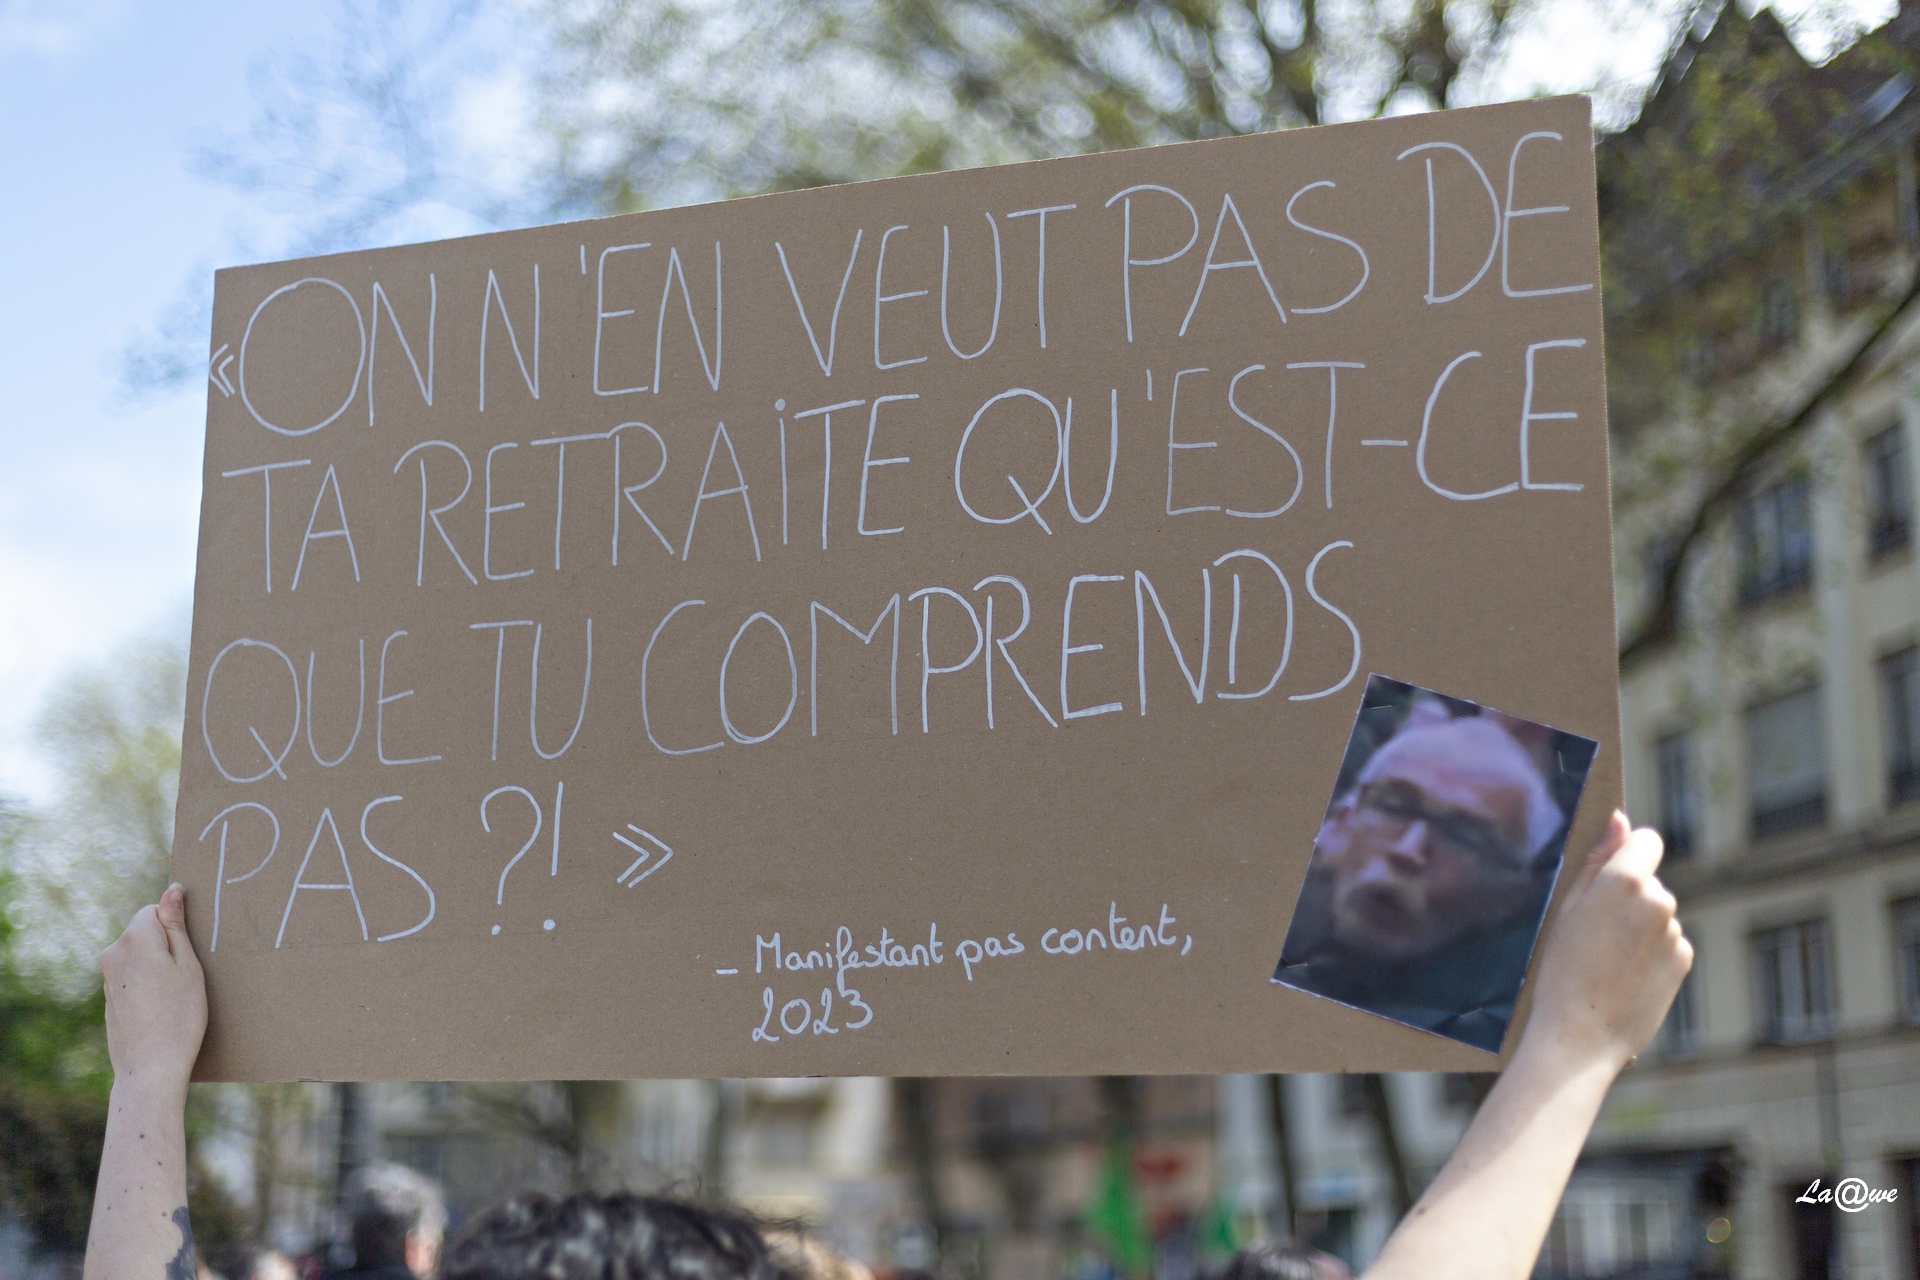 «ON N'EN VEUT PAS DE
TA RETRAiTE QU'EST-CE
QUE TU COMPRENDS
PAS ?! »
– Manifestant pas content,
2023
La@we